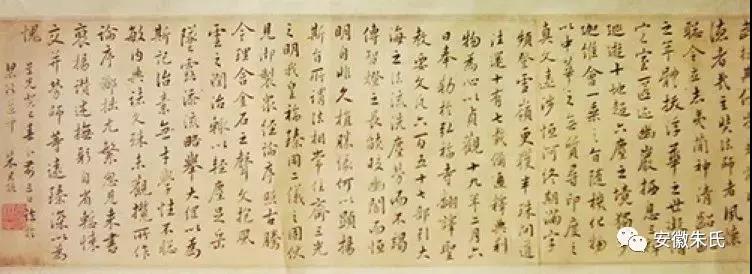 德者哉玄奘法師者夙懷
聰令立志夷簡神清齠齔
之年體拔浮華之世凝情
定室匿迹幽巖栖息三禪
巡遊十地超六塵之境獨步
迦維會一乘之旨隨機化物
以中華之無質尋印度之
真文遠涉恒河終期滿字
頻登雪嶺更獲半珠問道
往還十有七載備通釋典利
物為心以貞觀十九年二月六
日奉勅於弘福寺翻譯聖
教要文凡六百五十七部引大
海之法流洗塵勞而不竭
傳智燈之長焰皎幽闇而恒
明自非久植勝緣何以顯揚
斯旨所謂法相常住齊三光
之明我皇福臻同二儀之固伏
見御製眾經論序照古騰
今理含金石之聲文抱風
雲之潤治輒以輕塵足岳
墜露添流略舉大綱以為
斯記治素無才學性不聰
敏內典諸文殊未觀攬所作
論序鄙拙尤繁忽見來書
褒揚讚述撫躬自省慙悚
交并勞師等遠臻深以為
愧
安徽朱氏